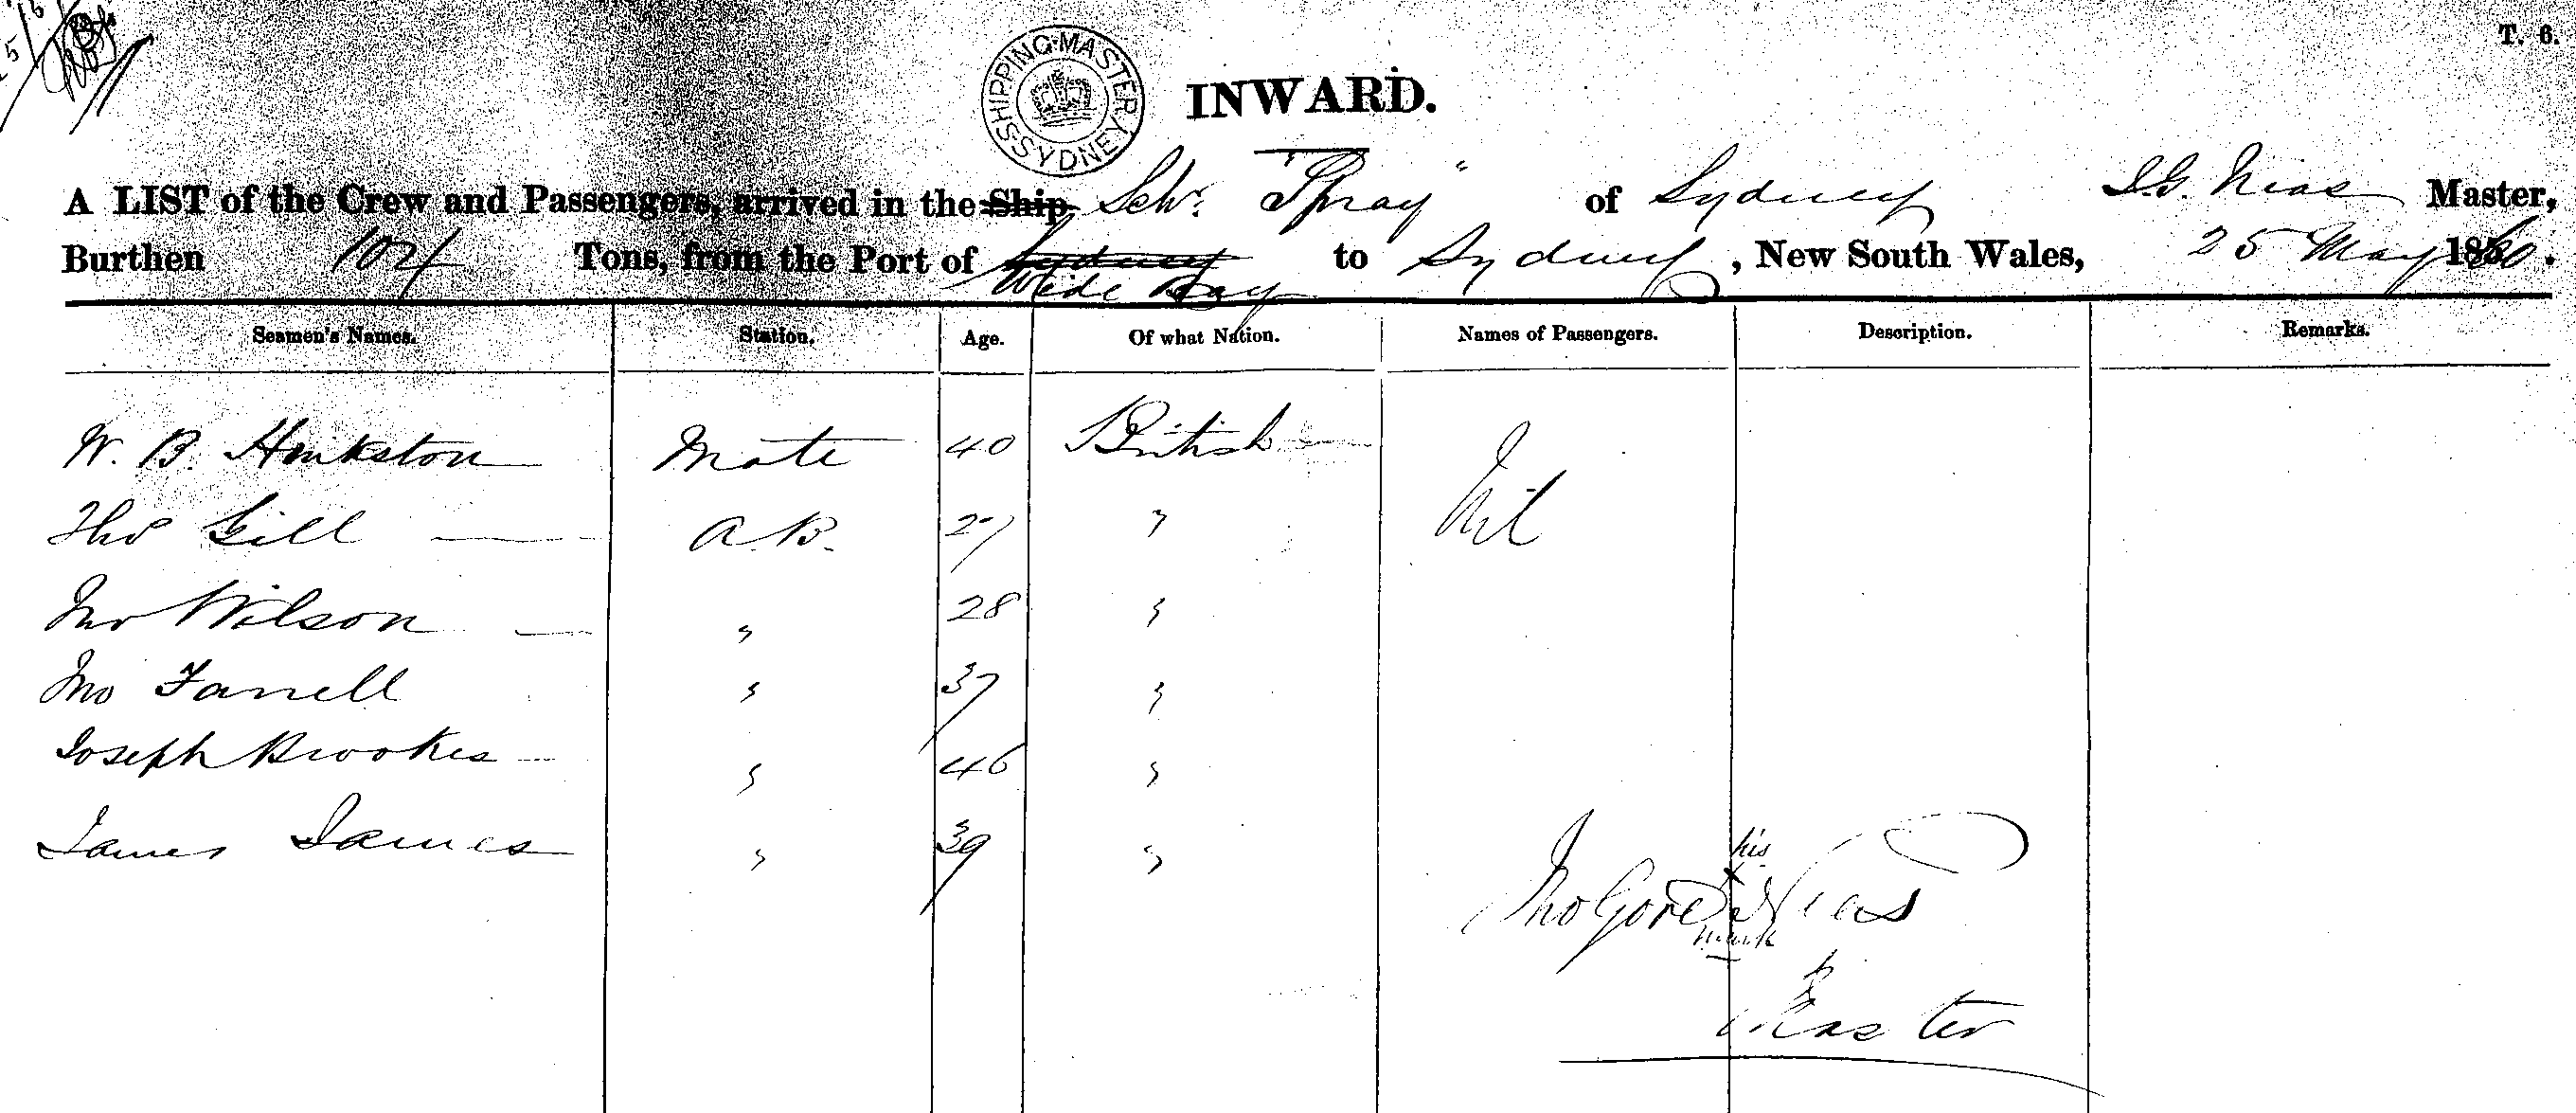 T. 6.
SHIPPING MASTER SYDNEY
INWARD.
A LIST of the Crew and Passengers, arrived in the Ship Schr. "Spray" of Sydney J.G. Nias Master,
Burthen 104 Tons, from the Port of Sydney Wide Bay to Sydney, New South Wales, 25 May 1860.
Seamen's Names. Station. Age. Of what Nation. Names of Passengers. Description. Remarks.
W. B. Hinkston Mate 40 British Nil
Tho Gill A.B. 27 "
Jno Wilson " 28 "
Jno Farrell " 37 "
Joseph Brookes " 46 "
James James " 39 "
his
Jno Gore x Nias
mark
Master